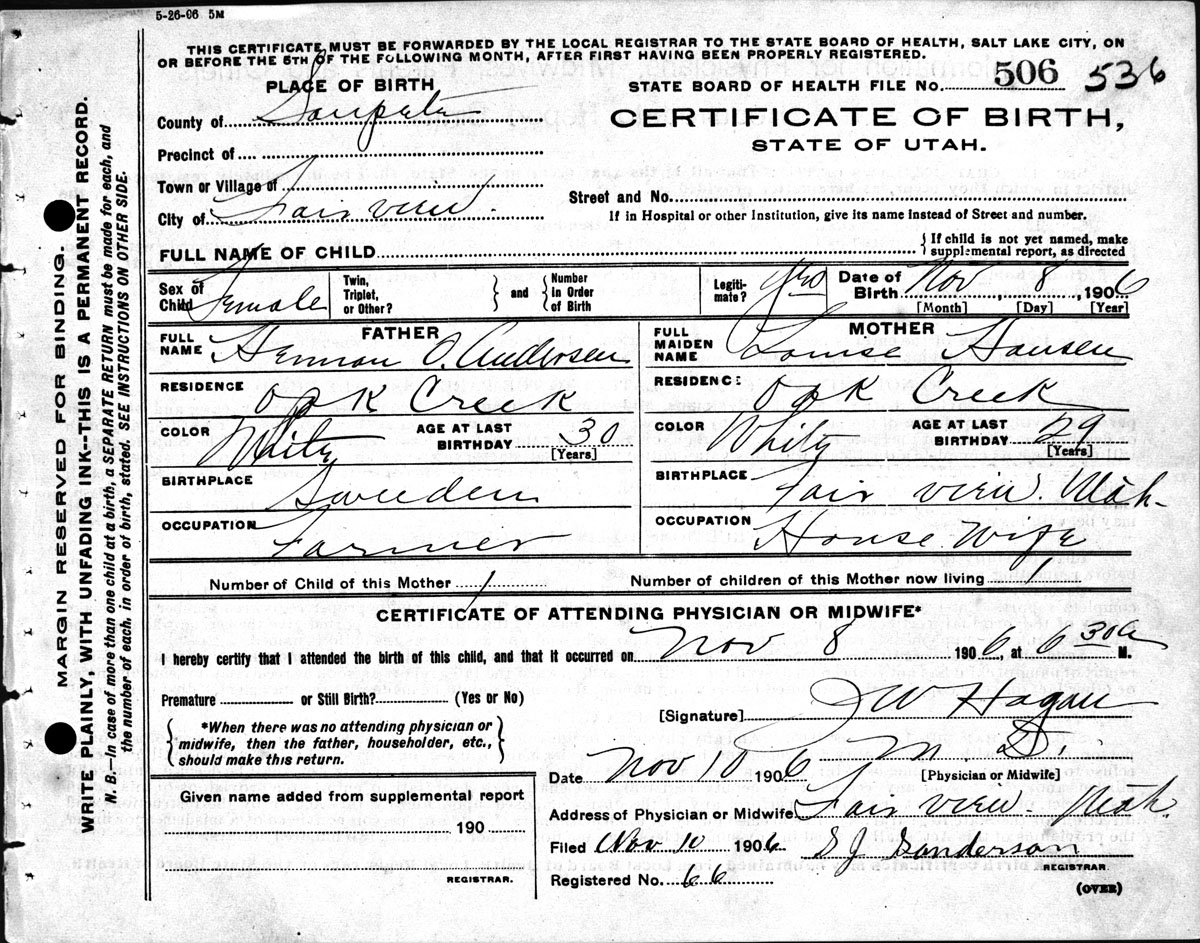 5-26-06 5M
THIS CERTIFICATE MUST BE FORWARDED BY THE LOCAL REGISTRAR TO THE STATE BOARD OF HEALTH, SALT LAKE CITY, ON
OR BEFORE THE 5TH OF THE FOLLOWING MONTH, AFTER FIRST HAVING BEEN PROPERLY REGISTERED.
PLACE OF BIRTH
STATE BOARD OF HEALTH FILE No. 506 536
County of Sanpete
CERTIFICATE OF BIRTH,
STATE OF UTAH.
Precinct of
Town or Village of
Street and No.
City of Fair view.
If in Hospital or other Institution, give its name instead of Street and number.
FULL NAME OF CHILD
{ If child is not yet named, make
supplemental report, as directed
Sex of Child Female
Twin, Triplet, or Other? } and { Number in Order of Birth
Legiti-mate? yes
Date of Birth Nov 8, 1906
[Month] [Day] [Year]
FATHER
FULL NAME Herman O. Andersen
RESIDENCE Oak Creek
COLOR White AGE AT LAST BIRTHDAY 30
[Years]
BIRTHPLACE Sweden
OCCUPATION Farmer
MOTHER
FULL MAIDEN NAME Louise Hansen
RESIDENCE Oak Creek
COLOR White AGE AT LAST BIRTHDAY 29
[Years]
BIRTHPLACE Fair view. Utah.
OCCUPATION House Wife
Number of Child of this Mother 1 Number of children of this Mother now living 1
CERTIFICATE OF ATTENDING PHYSICIAN OR MIDWIFE*
I hereby certify that I attended the birth of this child, and that it occurred on Nov 8 1906, at 6 30 a M.
Premature or Still Birth? (Yes or No)
[Signature] J W Hagan
M. D.
[Physician or Midwife]
{ *When there was no attending physician or
midwife, then the father, householder, etc.,
should make this return. }
Date Nov 10 1906
Given name added from supplemental report
190
REGISTRAR.
Address of Physician or Midwife Fair view Utah.
Filed Nov 10 1906 S J Sanderson
REGISTRAR.
Registered No. 66
(OVER)
MARGIN RESERVED FOR BINDING.
WRITE PLAINLY, WITH UNFADING INK--THIS IS A PERMANENT RECORD.
N. B.—In case of more than one child at a birth, a SEPARATE RETURN must be made for each, and
the number of each, in order of birth, stated. SEE INSTRUCTIONS ON OTHER SIDE.